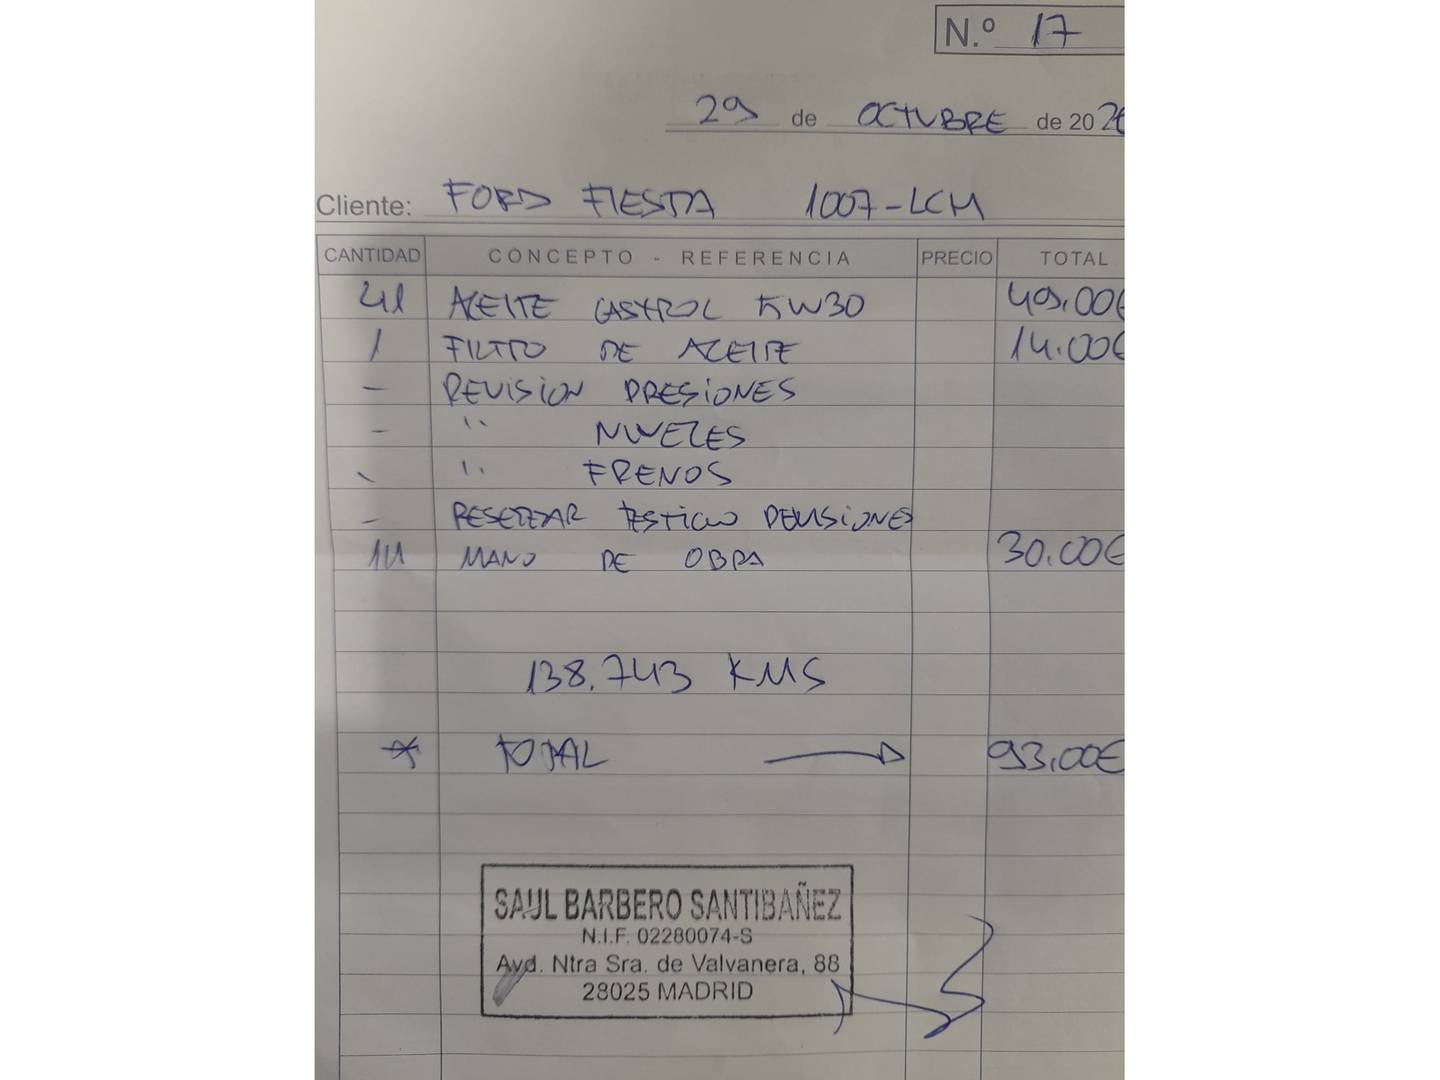 N.º 17
29 de OCTUBRE de 202
Cliente: FORD FIESTA 1007-LCM
CANTIDAD CONCEPTO - REFERENCIA PRECIO TOTAL
4l ACEITE CASTROL 5W30 49.00€
1 FILTRO DE ACEITE 14.00€
- REVISION PRESIONES
- '' NIVELES
- '' FRENOS
- RESETEAR TESTIGO REVISIONES
1H MANO DE OBRA 30.00€
138.743 KMS
* TOTAL → 93.00€
SAUL BARBERO SANTIBAÑEZ
N.I.F. 02280074-S
Avd. Ntra Sra. de Valvanera, 88
28025 MADRID